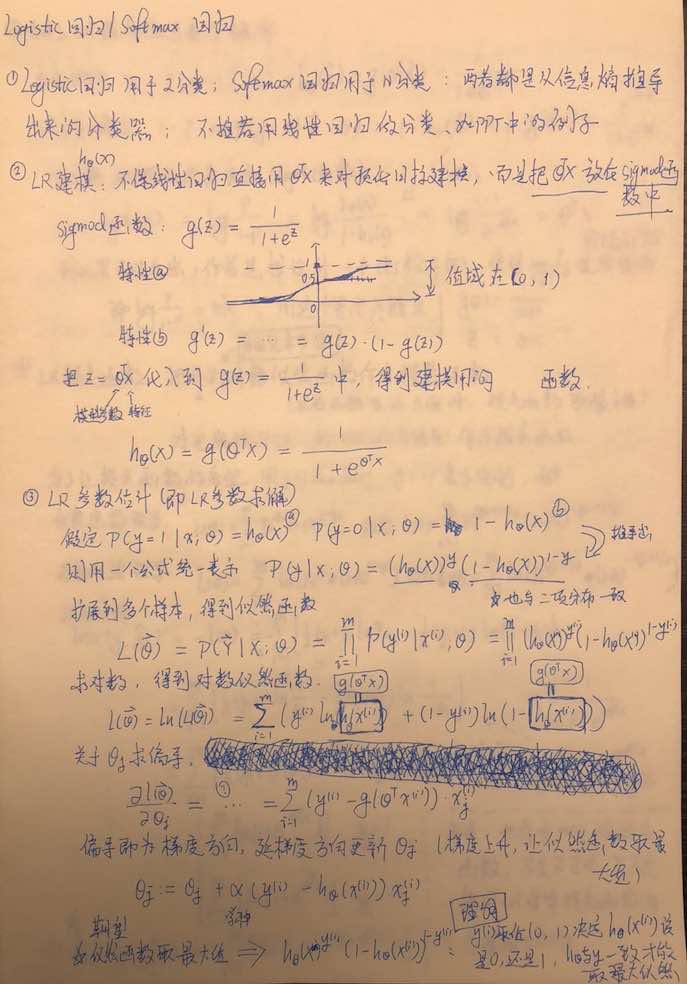 Logistic回归 / Softmax 回归
① Logistic回归用于2分类；Softmax回归用于N分类：两者都是从信息熵推导
出来的分类器；不推荐用线性回归做分类、如PPT中的例子
hθ(x)
② LR建模：不像线性回归直接用θᵀX来对 建模、而是把θᵀX放在sigmod函
数中
sigmod函数：g(z) = 1/(1+e^z)
特性ⓐ 1 0.5 0 值域在(0, 1)
特性ⓑ g'(z) = … = g(z)·(1-g(z))
把 z = θᵀX 代入到 g(z) = 1/(1+e^z) 中，得到建模用的 函数.
模型参数 特征
hθ(x) = g(θᵀX) = 1/(1+e^(θᵀx))
③ LR参数估计(即LR参数求解)
假定 P(y=1|x;θ) = hθ(x) ⓐ P(y=0|x;θ) = 1-hθ(x) ⓑ
则用一个公式统一表示 P(y|x;θ) = (hθ(x))^y (1-hθ(x))^(1-y) 推导出
也与二项分布一致
扩展到多个样本，得到似然函数
L(θ⃗) = P(Y⃗|X;θ) = ∏_{i=1}^{m} P(y⁽ⁱ⁾|x⁽ⁱ⁾;θ) = ∏_{i=1}^{m} (hθ(x))^{y⁽ⁱ⁾} (1-hθ(x))^{1-y⁽ⁱ⁾}
求对数，得到对数似然函数. g(θᵀX) g(θᵀX)
l(θ⃗) = ln(L(θ⃗)) = ∑_{i=1}^{m} (y⁽ⁱ⁾ ln h(x⁽ⁱ⁾) + (1-y⁽ⁱ⁾) ln(1-h(x⁽ⁱ⁾)))
关于θj求偏导，
∂l(θ⃗)/∂θj = … = ∑_{i=1}^{m} (y⁽ⁱ⁾ - g(θᵀx⁽ⁱ⁾))·xj⁽ⁱ⁾
偏导即为梯度方向，延梯度方向更新θj (梯度上升，让似然函数取最
大值)
θj := θj + α(y⁽ⁱ⁾ - hθ(x⁽ⁱ⁾)) xj⁽ⁱ⁾
理解
期望
似然函数取最大值 ⟹ hθ(x)^{y⁽ⁱ⁾} (1-hθ(x⁽ⁱ⁾))^{1-y⁽ⁱ⁾}：y⁽ⁱ⁾取值(0, 1)决定hθ(x⁽ⁱ⁾)该
是0，还是1，hθ与y一致才能
取最大似然